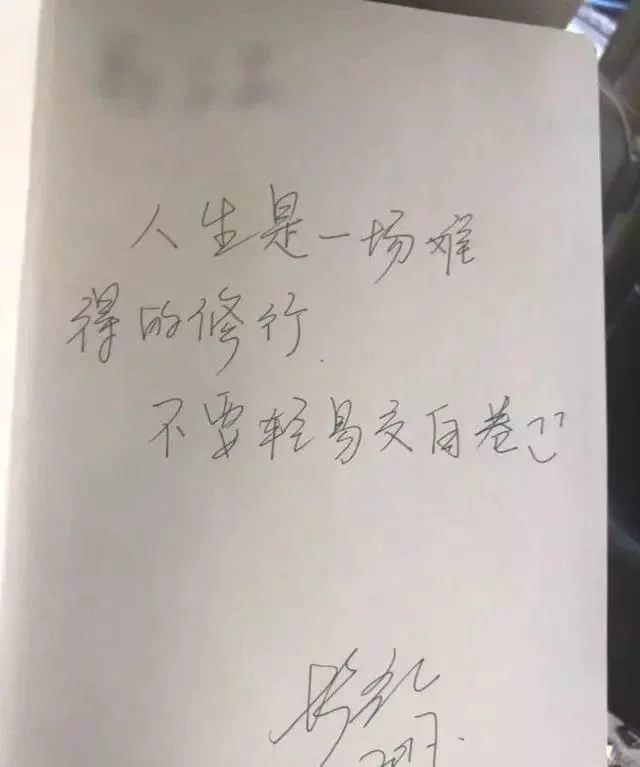 人生是一场难
得的修行.
不要轻易交白卷